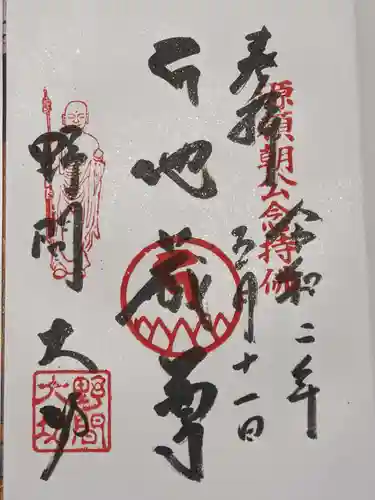 奉拝
源頼朝公念持仏
令和二年
月十一日
地蔵尊
野間大坊
野間
大坊